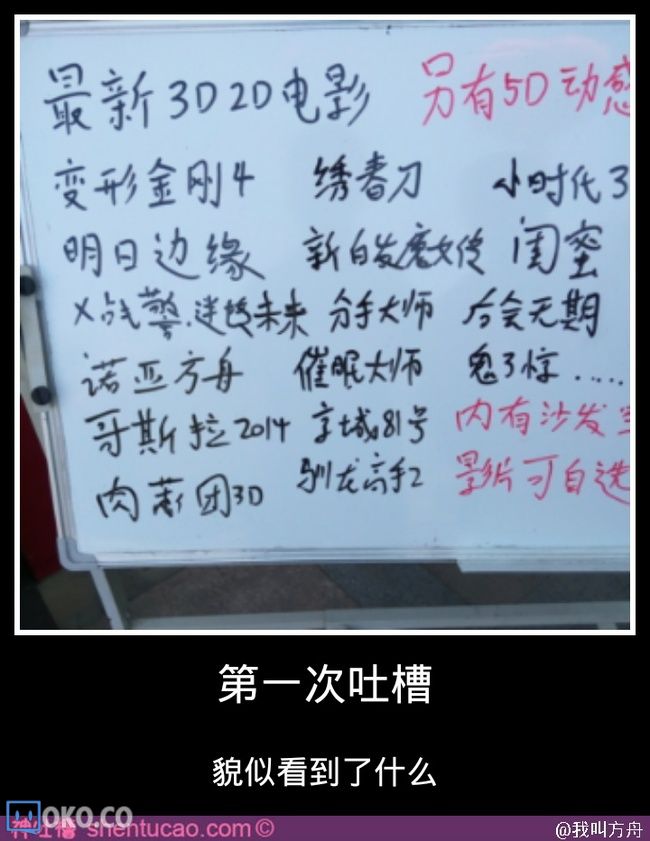 最新3D2D电影 另有5D动感
变形金刚4 绣春刀 小时代3
明日边缘 新白发魔女传 闺蜜
X战警.逆转未来 分手大师 后会无期
诺亚方舟 催眠大师 鬼了惊.....
哥斯拉2014 京城81号 内有沙发
肉蒲团3D 驯龙高手2 影片可自选
第一次吐槽
貌似看到了什么
OKO.CO
神吐槽 shentucao.com©
@我叫方舟